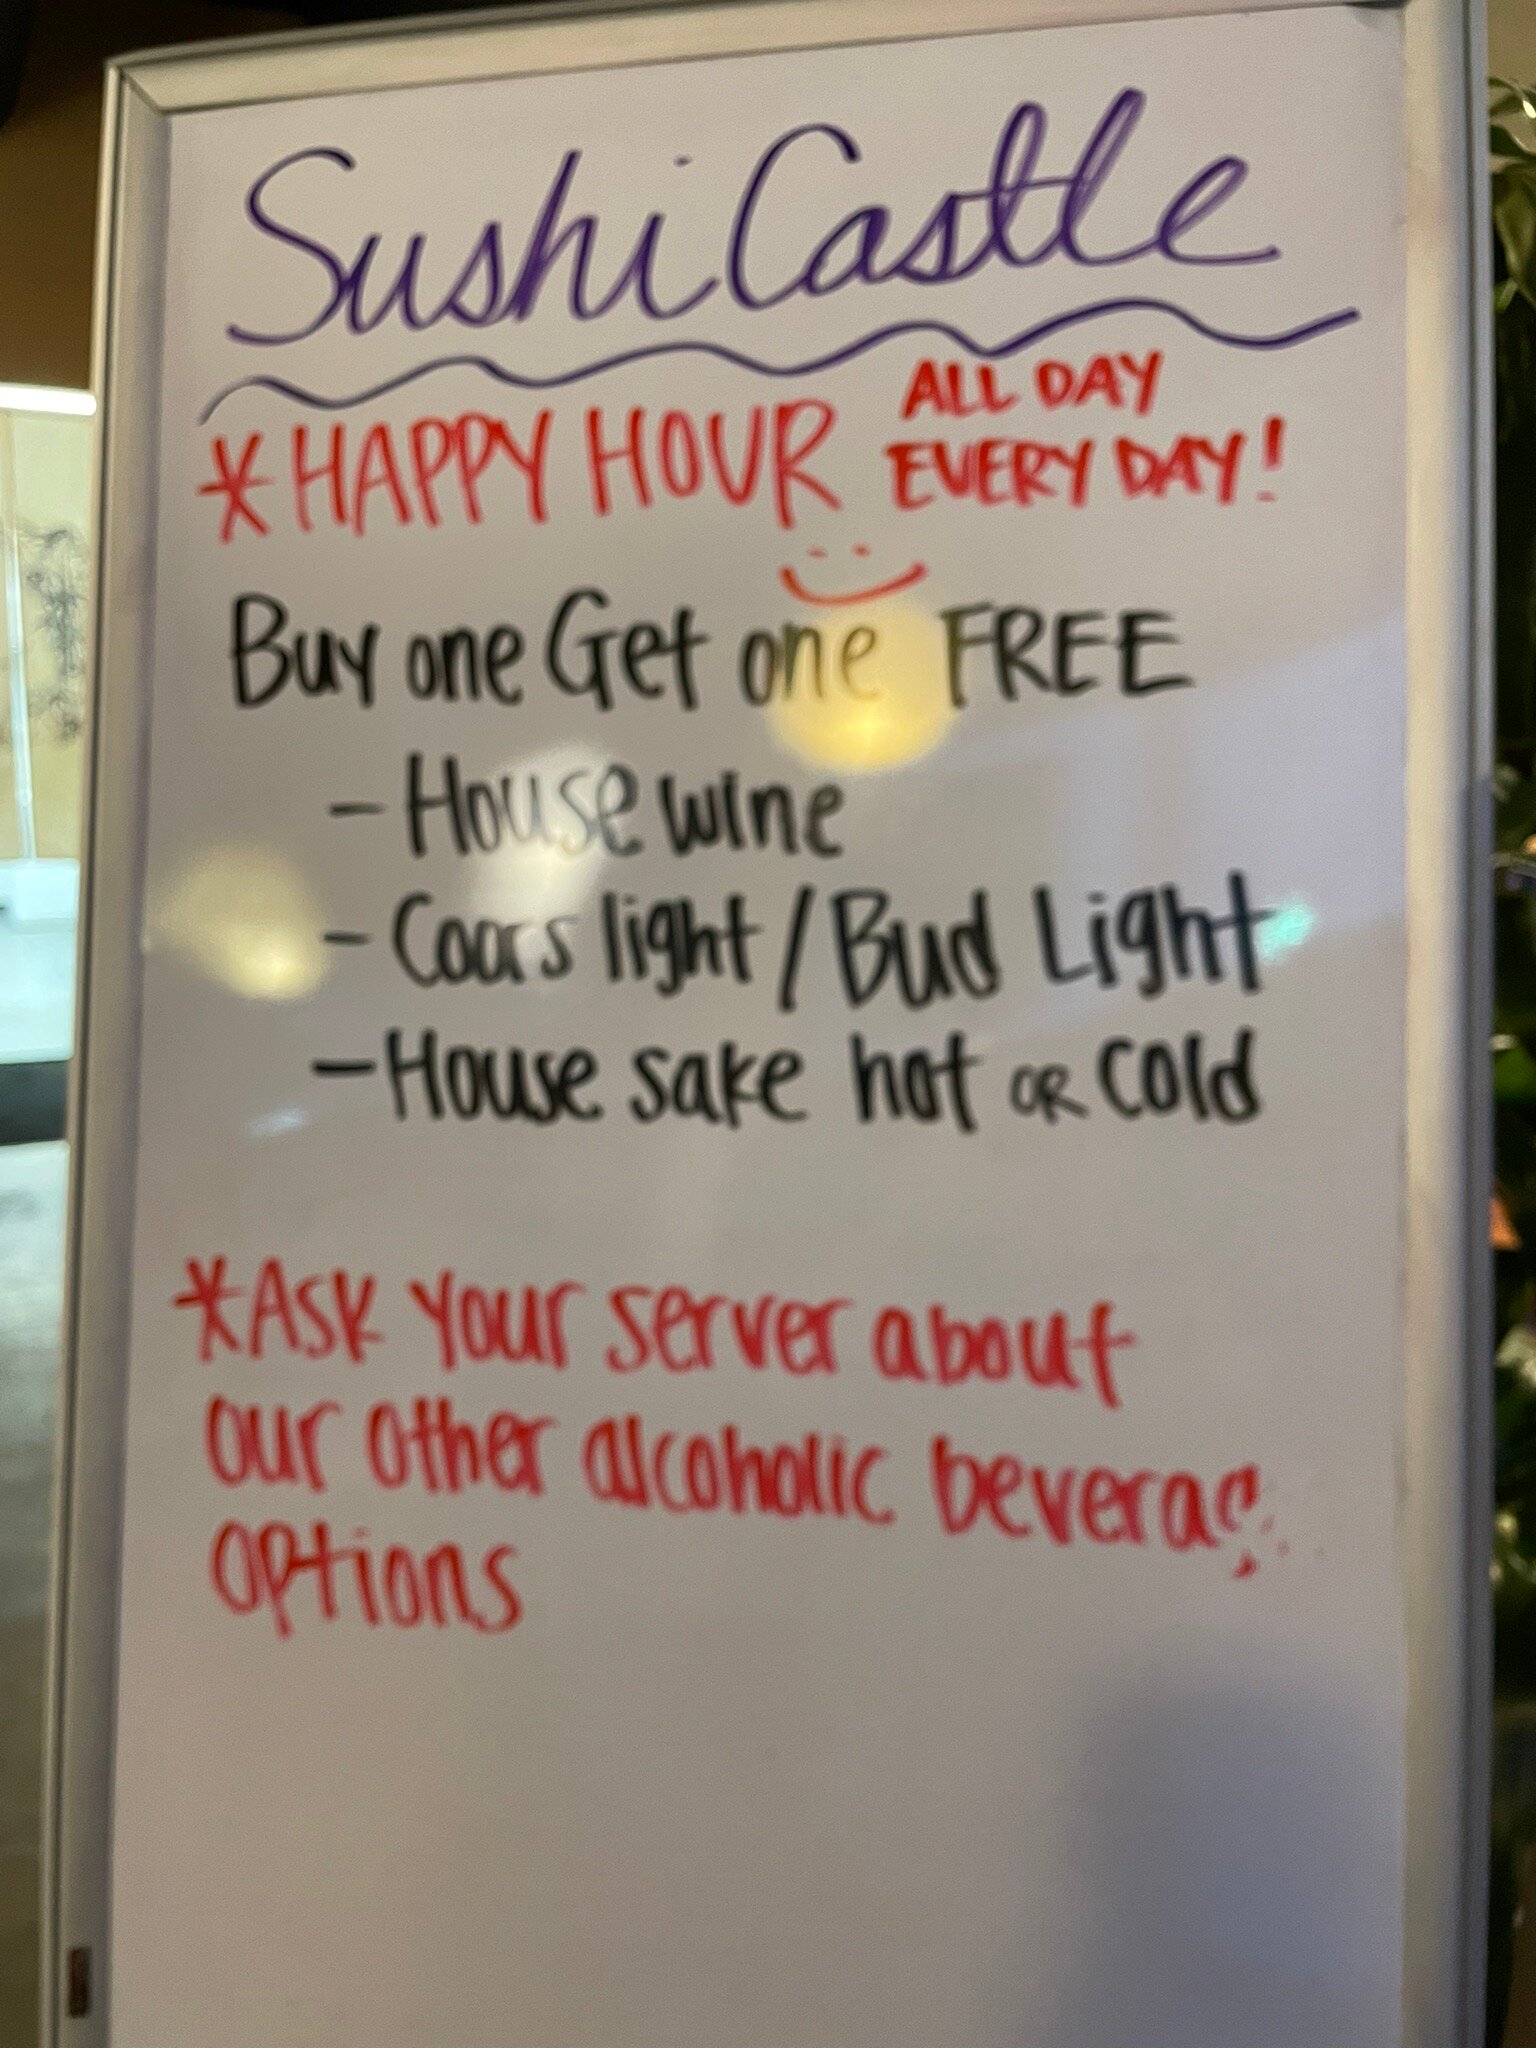 Sushi Castle
*HAPPY HOUR ALL DAY
EVERY DAY!
Buy one Get one FREE
- House wine
- Coors light / Bud Light
- House sake hot or cold
*Ask your server about
our other alcoholic beverag
options